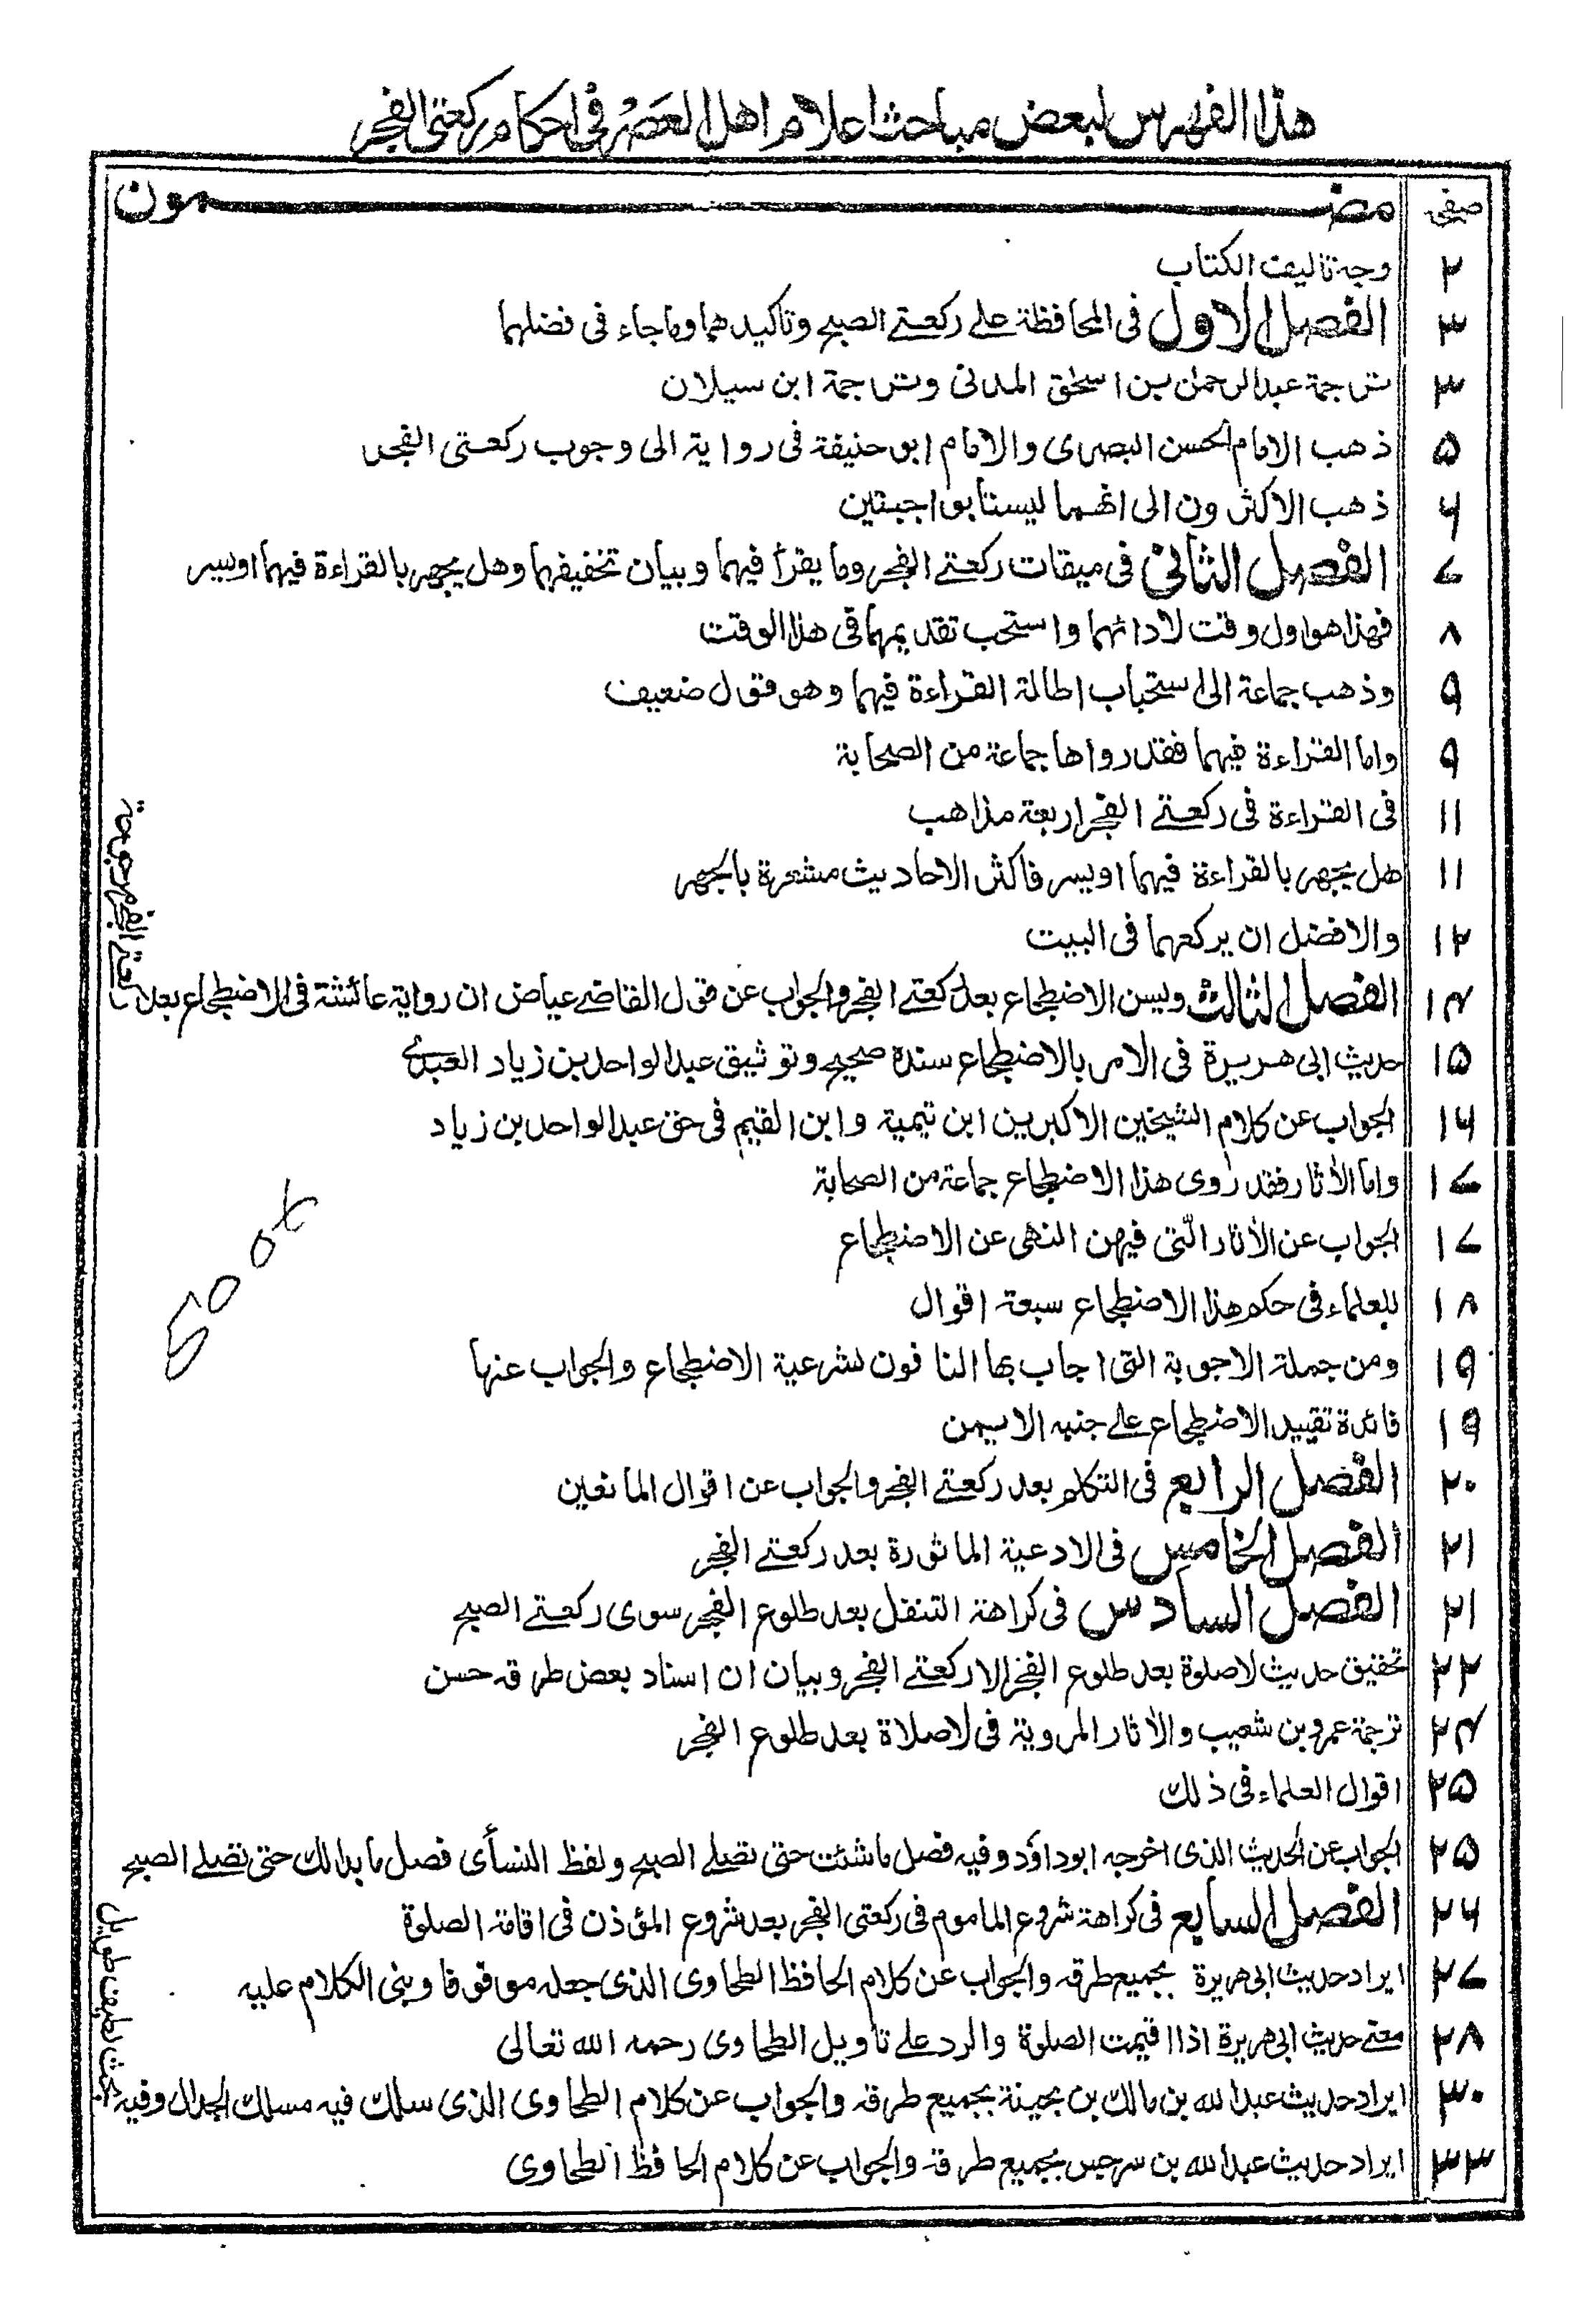 هذا الفهرس لبعض مباحث اعلام اهل العصر فى احكام ركعتى الفجر
صفحہ مضمون
٢ وجه تاليف الكتاب
٣ الفصل الاول فى المحافظة على ركعتے الصبح وتاكيدهما وماجاء فى فضلهما
٣ ترجمة عبدالرحمٰن بن اسحٰق المدنى وترجمة ابن سيلان
۵ ذهب الامام الحسن البصرى والامام ابو حنيفة فى رواية الى وجوب ركعتى الفجر
۶ ذهب الاكثرون الى انهما ليستا بواجبتين
۷ الفصل الثانى فى ميقات ركعتے الفجر وما يقرأ فيهما وبيان تخفيفهما وهل يجهر بالقراءة فيهما اويسر
۸ فهذا هو اول وقت لادائهما واستحب تقديمهما فى هذا الوقت
۹ وذهب جماعة الى استحباب اطالة القراءة فيهما وهو قول ضعيف
۹ واما القراءة فيهما فقد رواها جماعة من الصحابة
۱۱ فى القراءة فى ركعتے الفجر اربعة مذاهب
۱۱ هل يجهر بالقراءة فيهما اويسر فاكثر الاحاديث مشعرة بالجهر
۱۲ والافضل ان يركعهما فى البيت
۱۴ الفصل الثالث ويسن الاضطجاع بعد ركعتے الفجر والجواب عن قول القاضے عياض ان رواية عائشة فى الاضطجاع بعد ركعتے الفجر مرجوحة
۱۵ حديث ابى هريرة فى الامر بالاضطجاع سنده صحيح وتوثيق عبدالواحد بن زياد العبدے
۱۶ الجواب عن كلام الشيخين الاكبرين ابن تيمية وابن القيم فى حق عبدالواحد بن زياد
۱۷ واما الاٰثار فقد روى هذا الاضطجاع جماعة من الصحابة
۱۷ الجواب عن الاٰثار الّتى فيهن النهى عن الاضطجاع
۱۸ للعلماء فى حكم هذا الاضطجاع سبعة اقوال
۱۹ ومن جملة الاجوبة التى اجاب بها النافون لشرعية الاضطجاع والجواب عنها
۱۹ فائدة تقييد الاضطجاع علے جنبه الايمن
۲۰ الفصل الرابع فى التكلم بعد ركعتے الفجر والجواب عن اقوال المانعين
۲۱ الفصل الخامس فى الادعية الماثورة بعد ركعتے الفجر
۲۱ الفصل السادس فى كراهة التنفل بعد طلوع الفجر سوى ركعتے الصبح
۲۲ تحقيق حديث لاصلوة بعد طلوع الفجر الا ركعتے الفجر وبيان ان اسناد بعض طرقه حسن
۲۴ ترجمة عمرو بن شعيب والاٰثار المروية فى لاصلاة بعد طلوع الفجر
۲۵ اقوال العلماء فى ذلك
۲۵ الجواب عن الحديث الذى اخرجه ابوداؤد وفيه فصل ماشئت حتى تصلے الصبح ولفظ النسأى فصل مابدالك حتى تصلے الصبح
۲۶ الفصل السابع فى كراهة شروع الماموم فى ركعتى الفجر بعد شروع المؤذن فى اقامة الصلوة
۲۷ ايراد حديث ابى هريرة بجميع طرقه والجواب عن كلام الحافظ الطحاوى الذى جعله موقوفا وبنى الكلام عليه
۲۸ معنے حديث ابى هريرة اذا اقيمت الصلوة والرد علے تاويل الطحاوى رحمه الله تعالى
۳۰ ايراد حديث عبدالله بن مالك بن بحينة بجميع طرقه والجواب عن كلام الطحاوى الذى سلك فيه مسلك الجدال وفيه بحث لطيف طويل
۳۳ ايراد حديث عبدالله بن سرجس بجميع طرقه والجواب عن كلام الحافظ الطحاوى